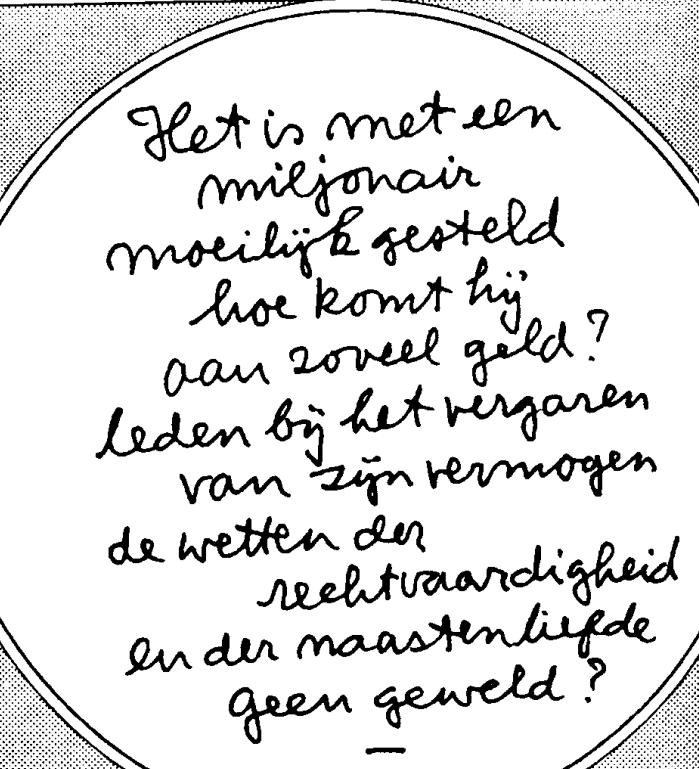 Het is met een
miljonair
moeilijk gesteld
hoe komt hij
aan zoveel geld?
leden bij het vergaren
van zijn vermogen
de wetten der
rechtvaardigheid
en der naastenliefde
geen geweld?